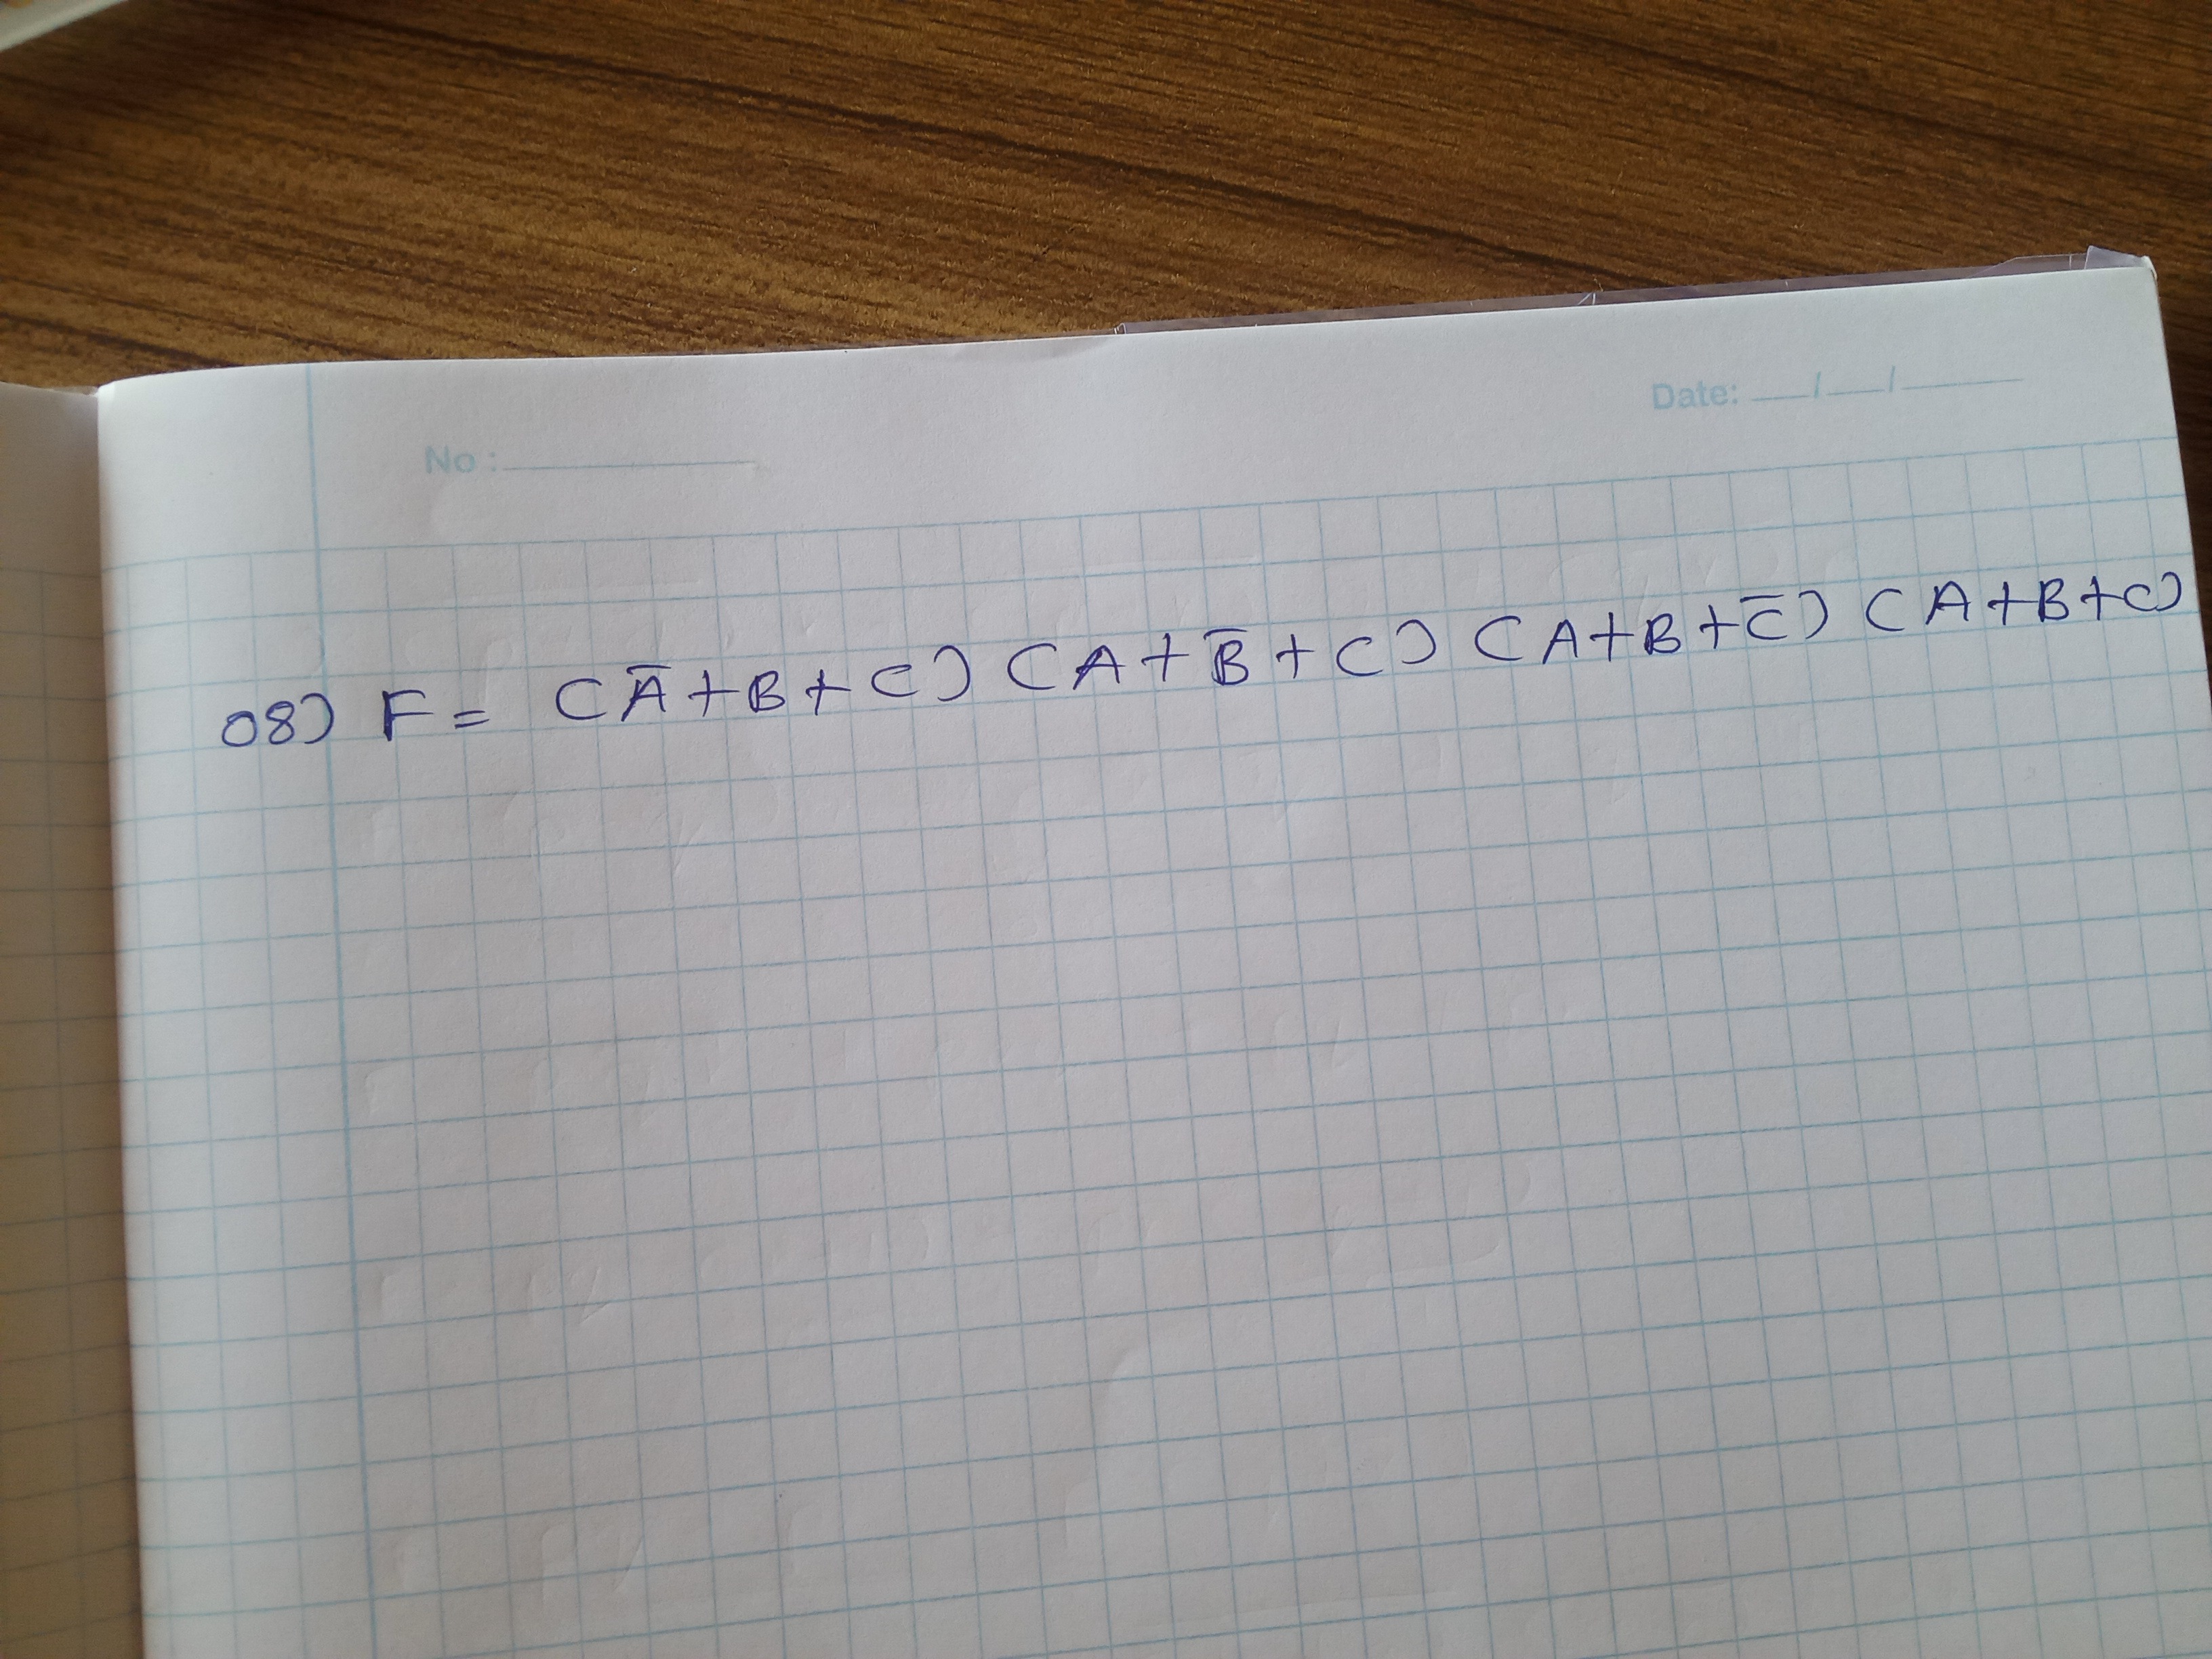 No :
Date: __/__/____
08) F = (A̅+B+C) (A+B̅+C) (A+B+C̅) (A+B+C)